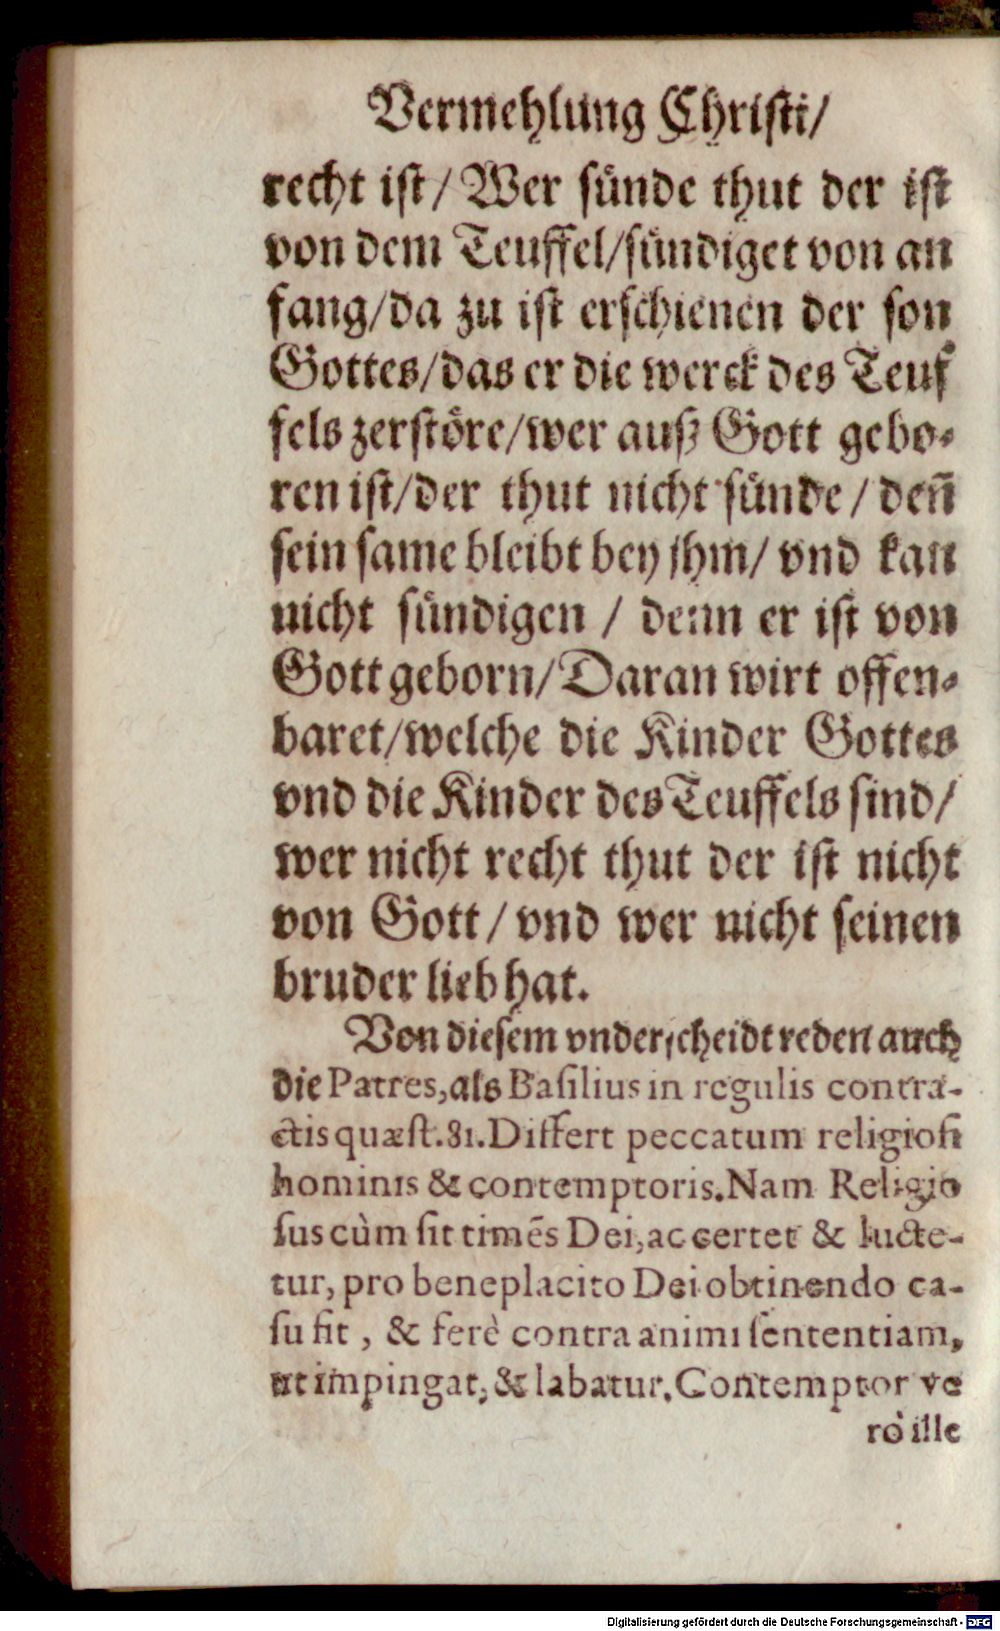 Vermehlung Christi/
recht ist/ Wer sünde thut der ist
von dem Teuffel/sündiget von an
fang/da zu ist erschienen der son
Gottes/das er die werck des Teuf
fels zerstöre/wer auß Gott gebo-
ren ist/der thut nicht sünde/ deñ
sein same bleibt bey jhm/ vnd kan
nicht sündigen / denn er ist von
Gott geborn/Daran wirt offen-
baret/welche die Kinder Gottes
vnd die Kinder des Teuffels sind/
wer nicht recht thut der ist nicht
von Gott/ vnd wer nicht seinen
bruder lieb hat.
Von diesem vnderscheidt reden auch
die Patres, als Basilius in regulis contra-
ctis quæst. 81. Differt peccatum religiosi
hominis & contemptoris. Nam Religio
sus cùm sit timẽs Dei, ac certet & lucte-
tur, pro beneplacito Dei obtinendo ca-
su fit, & ferè contra animi sententiam,
ut impingat, & labatur. Contemptor ve
rò ille
Digitalisierung gefördert durch die Deutsche Forschungsgemeinschaft - DFG